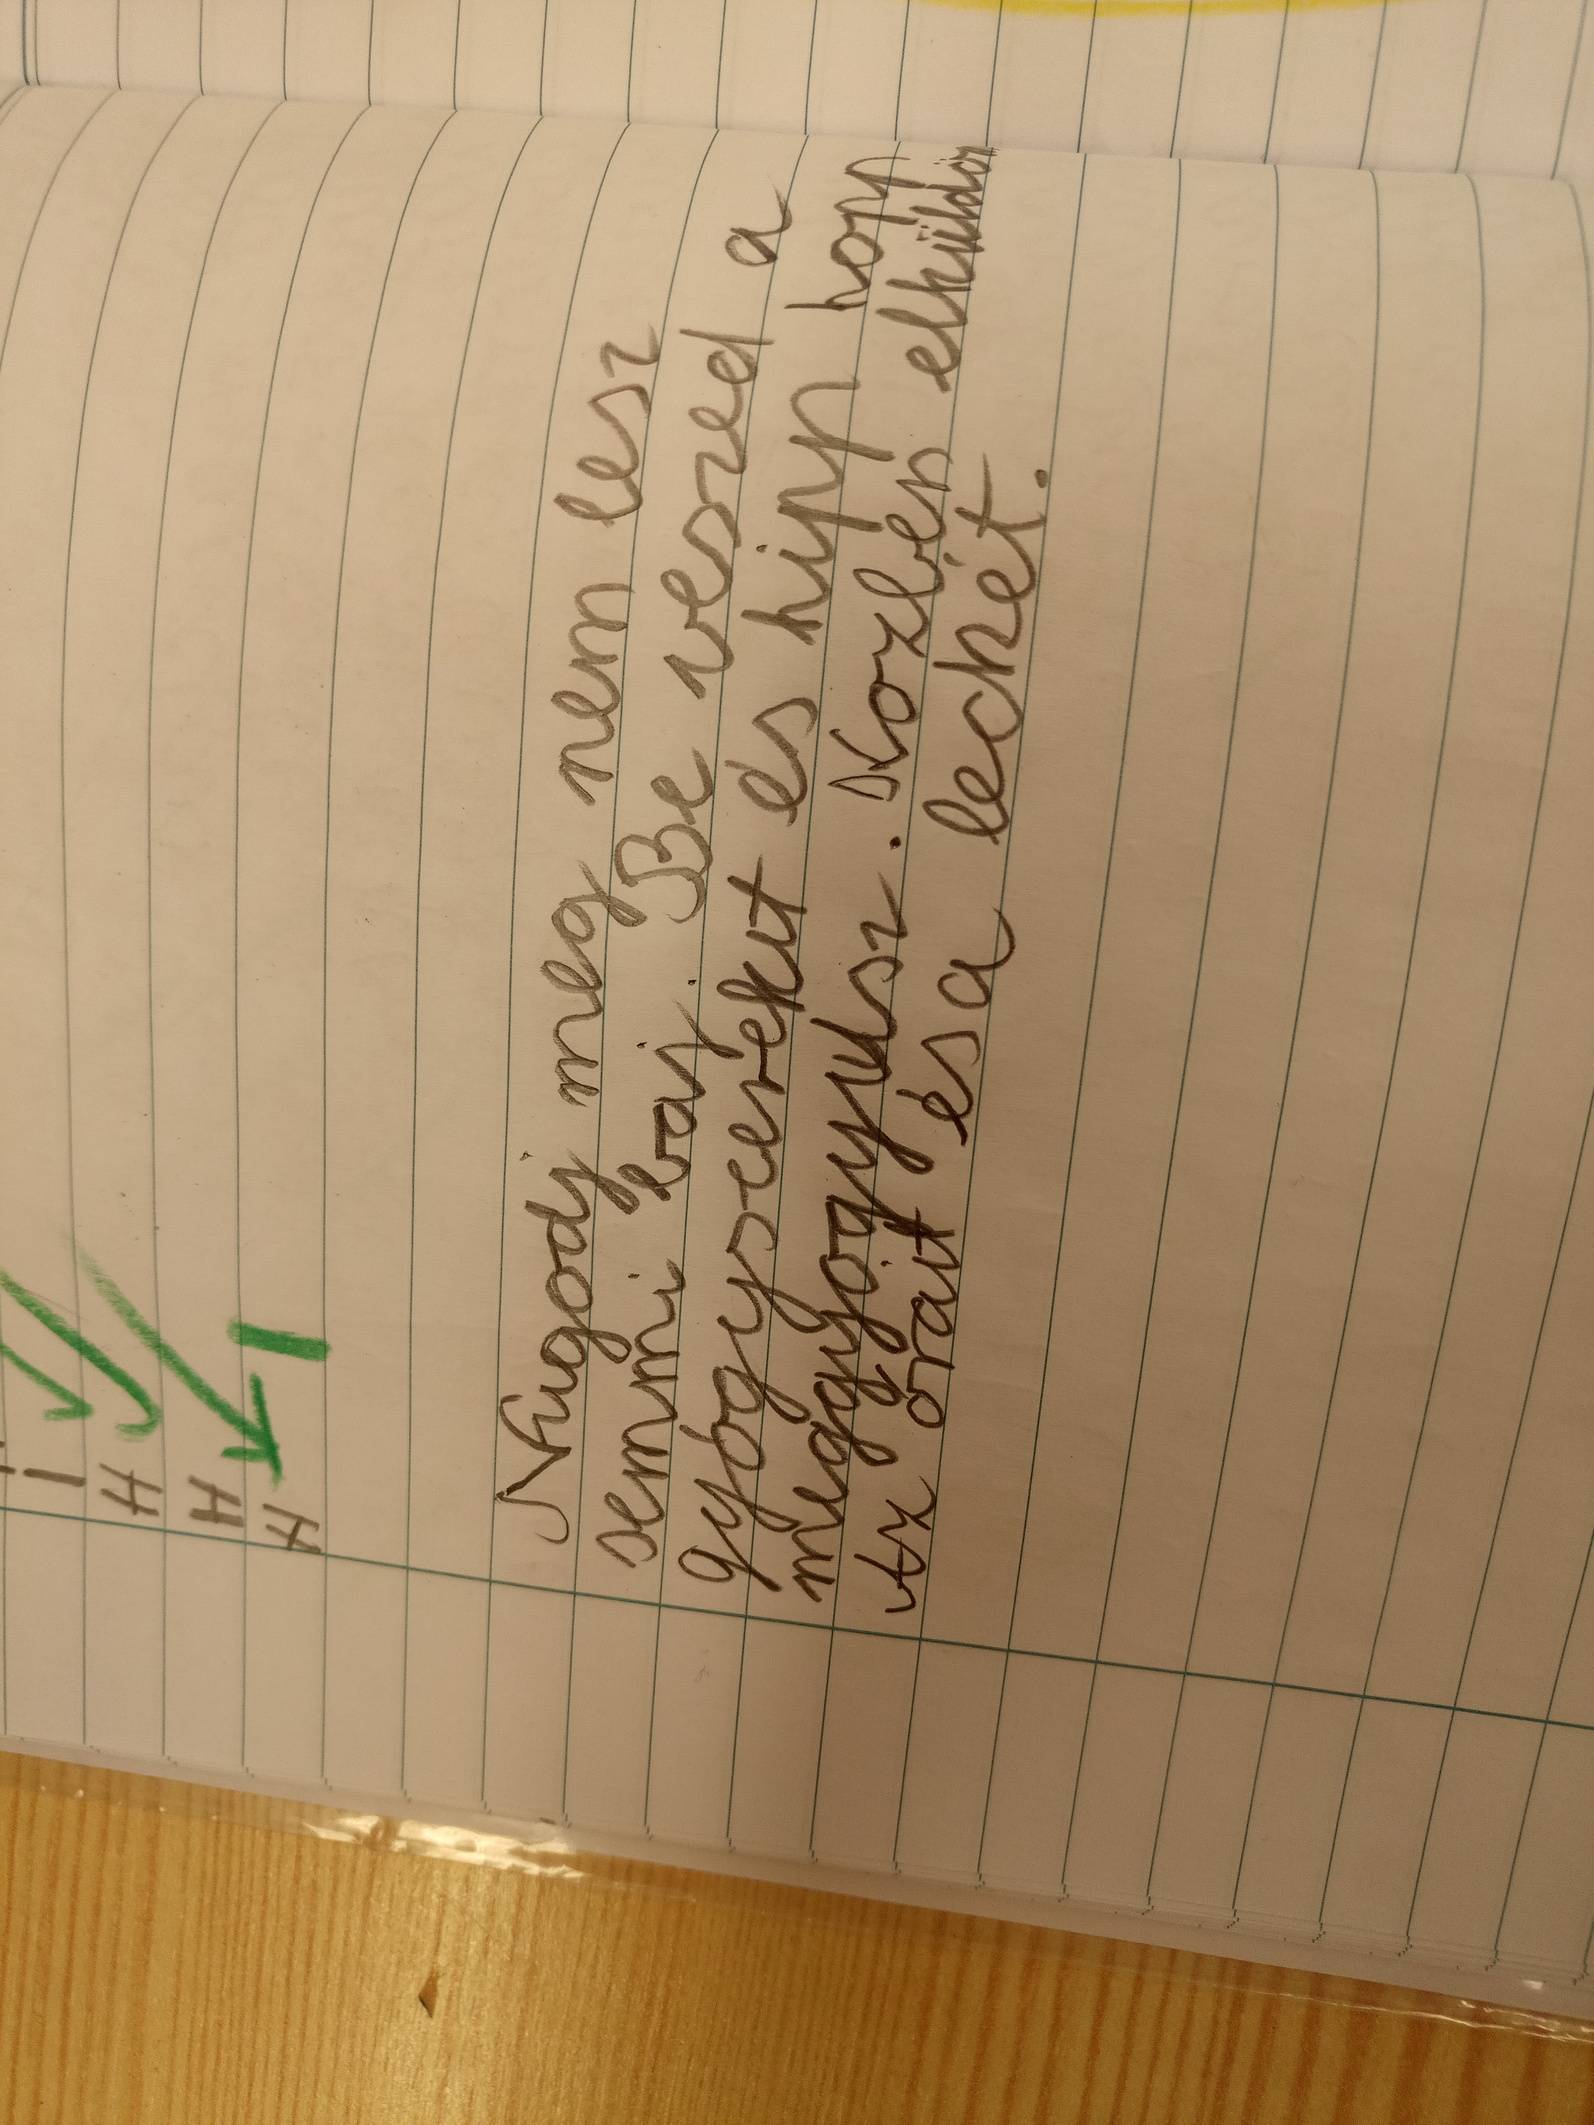 I
H
H
H
Nyugodj meg nem lesz
semmi baj. Be veszed a
gyógyszereket és hipp hopp
meggyógyulsz. Közben elküldöm
az órait és a leckét.